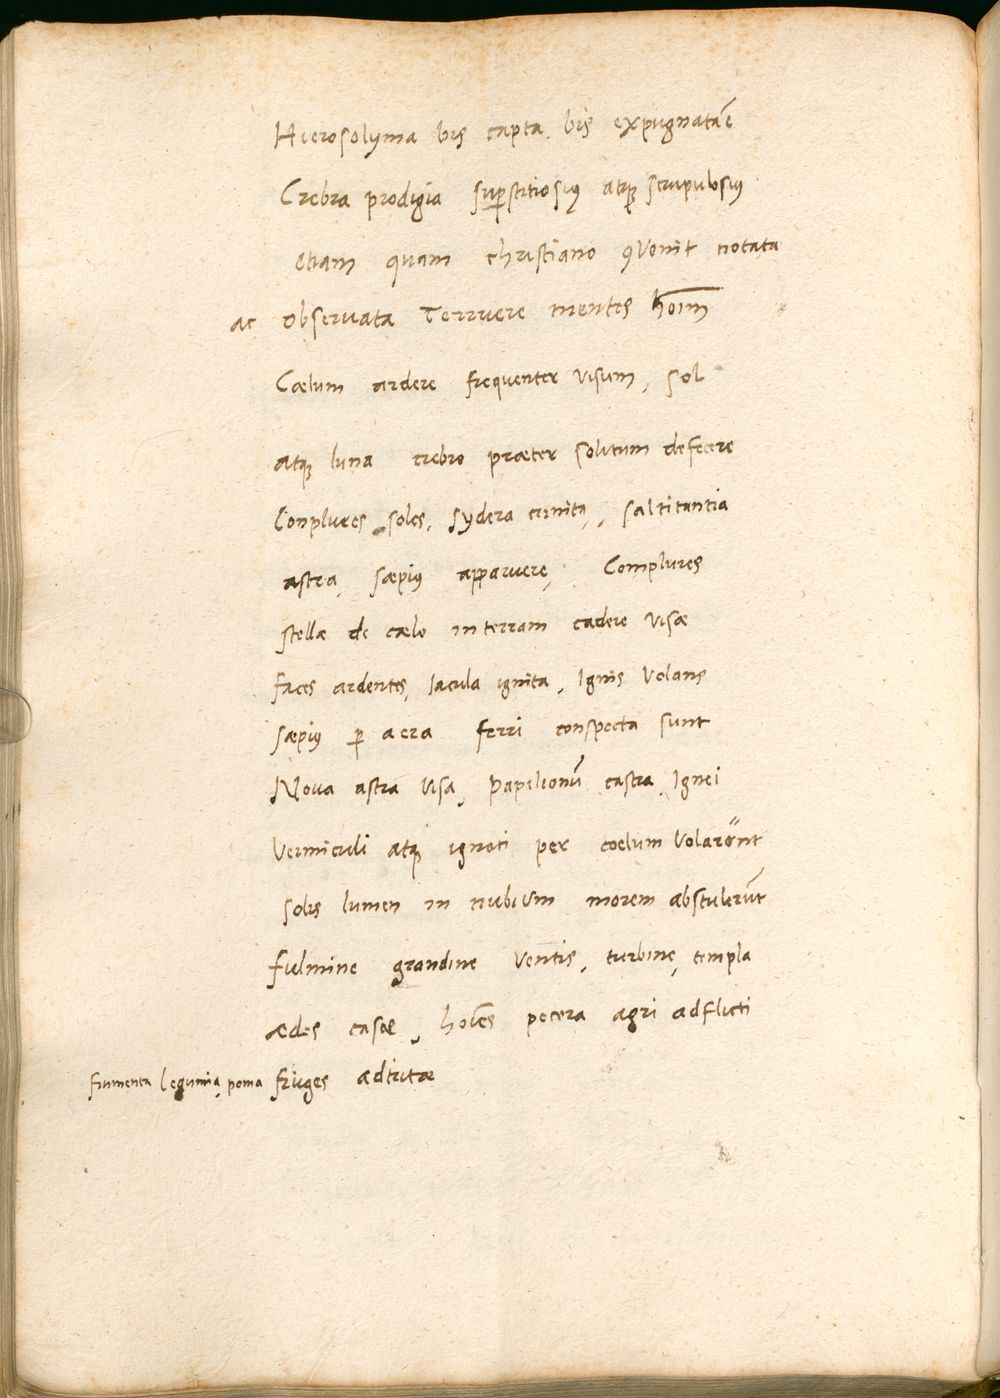 Hierosolyma bis capta. bis expugnatāē
Crebra prodigia sup̄stitiosiꝰ atqꝫ scrupulosiꝰ
etiam quam christiano ꝯvenit notata
ac observata Terruere mentes hoīm
Cælum ardere frequenter visum, sol
atqꝫ luna crebro præter solitum defecere
Conplures soles, sydera crinita, saltitantia
astra, sæpiꝰ apparuere, Complures
stellæ de cælo in terram cadere visæ
faces ardentes, Iacula ignita, Ignis Volans
sæpiꝰ ꝑ aera ferri conspecta sunt
Nova astra visa, Papilionū castra, Ignei
Vermiculi atqꝫ ignoti per coelum Volarunt
solis lumen in nubium morem abstulerūt
fulmine grandine Ventis, turbine, templa
ædes casæ, hoīes pecera agri adflicti
frumenta legumīa, poma fruges adtritæ